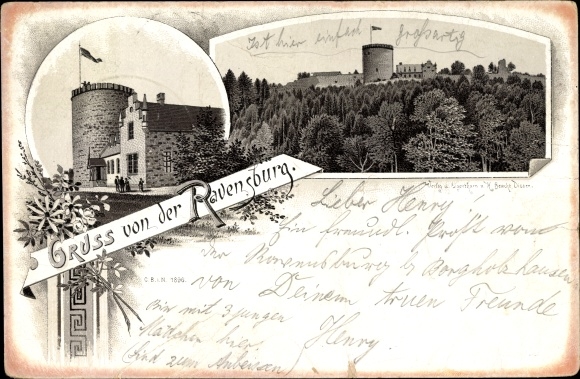 Ist hier einfach großartig
Gruss von der Ravensburg.
C.B.i.N. 1896.
Lieber Henry
Ein freundl. Prost von
der Ravensburg b/ Borgholzhausen
von Deinem treuen Freunde
Henry.
Bin mit 3 jungen
Mädchen hier.
(sind zum Anbeissen)